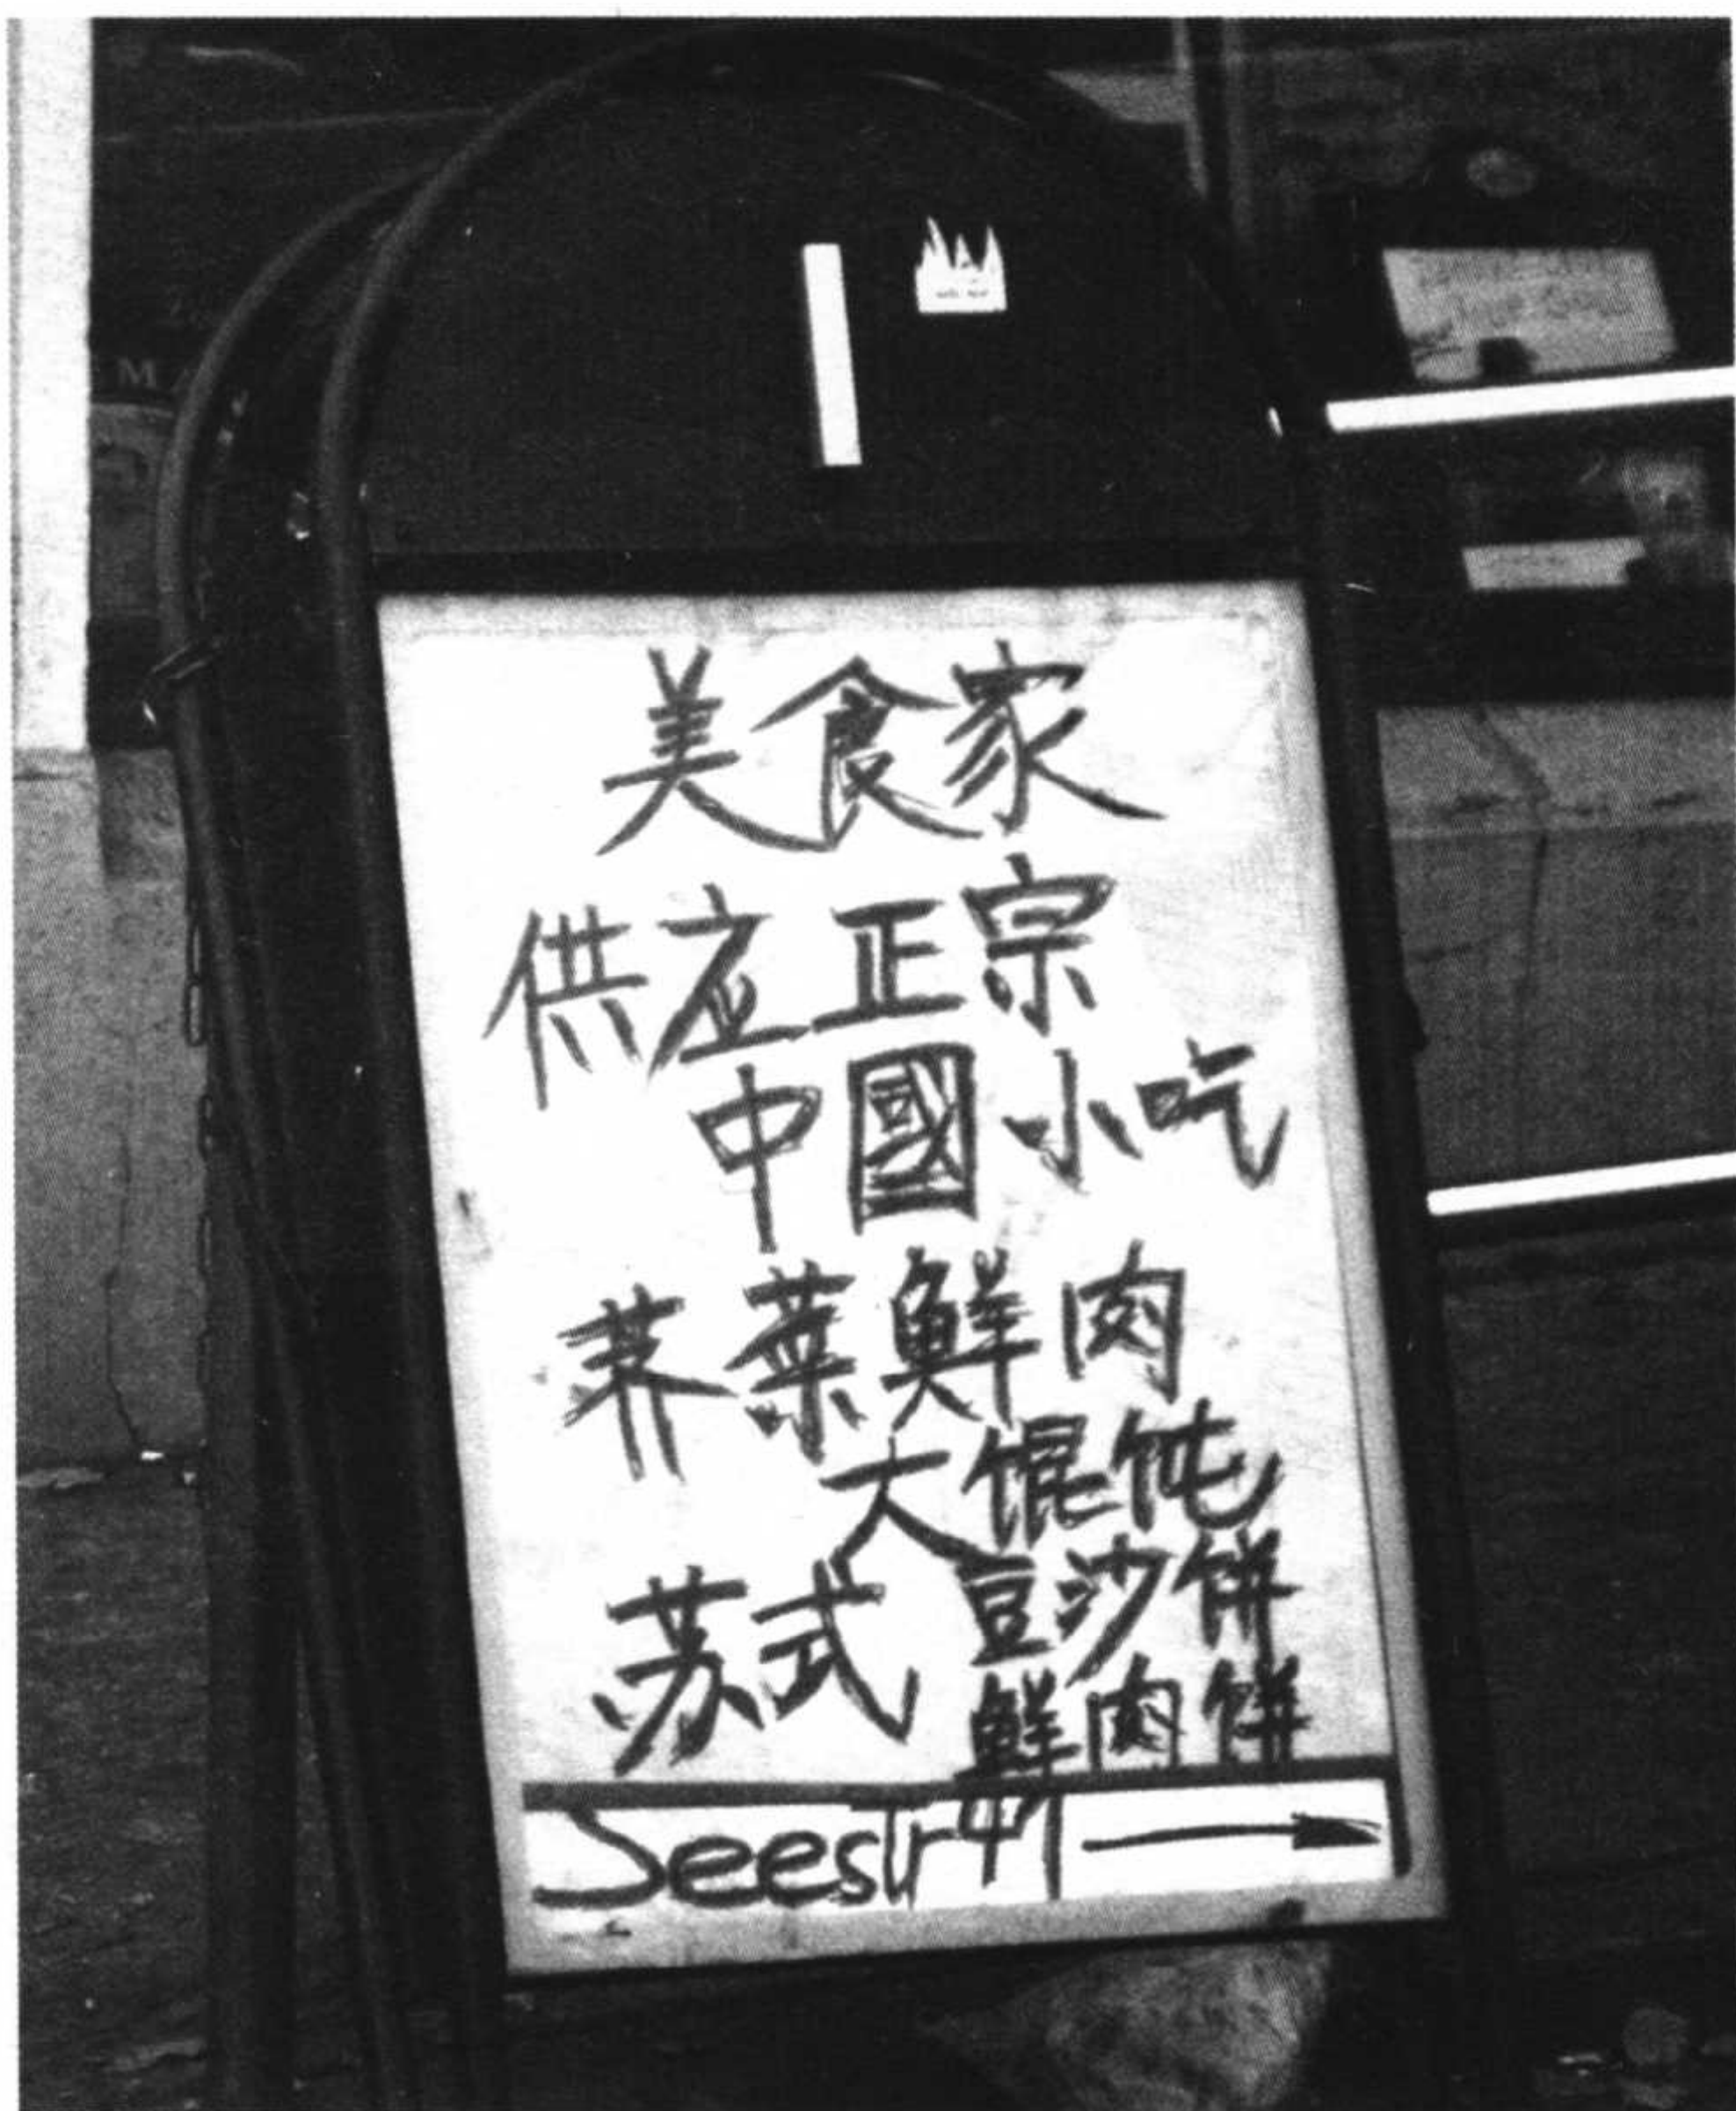 美食家
供应正宗
中國小吃
荠菜鲜肉
大馄饨
苏式 豆沙饼
鲜肉饼
Seestr 41 →
MA